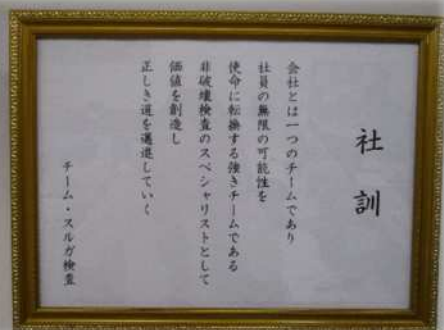 社訓
会社とは一つのチームであり
社員の無限の可能性を
使命に転換する強きチームである
非破壊検査のスペシャリストとして
価値を創造し
正しき道を邁進していく
チーム・スルガ検査